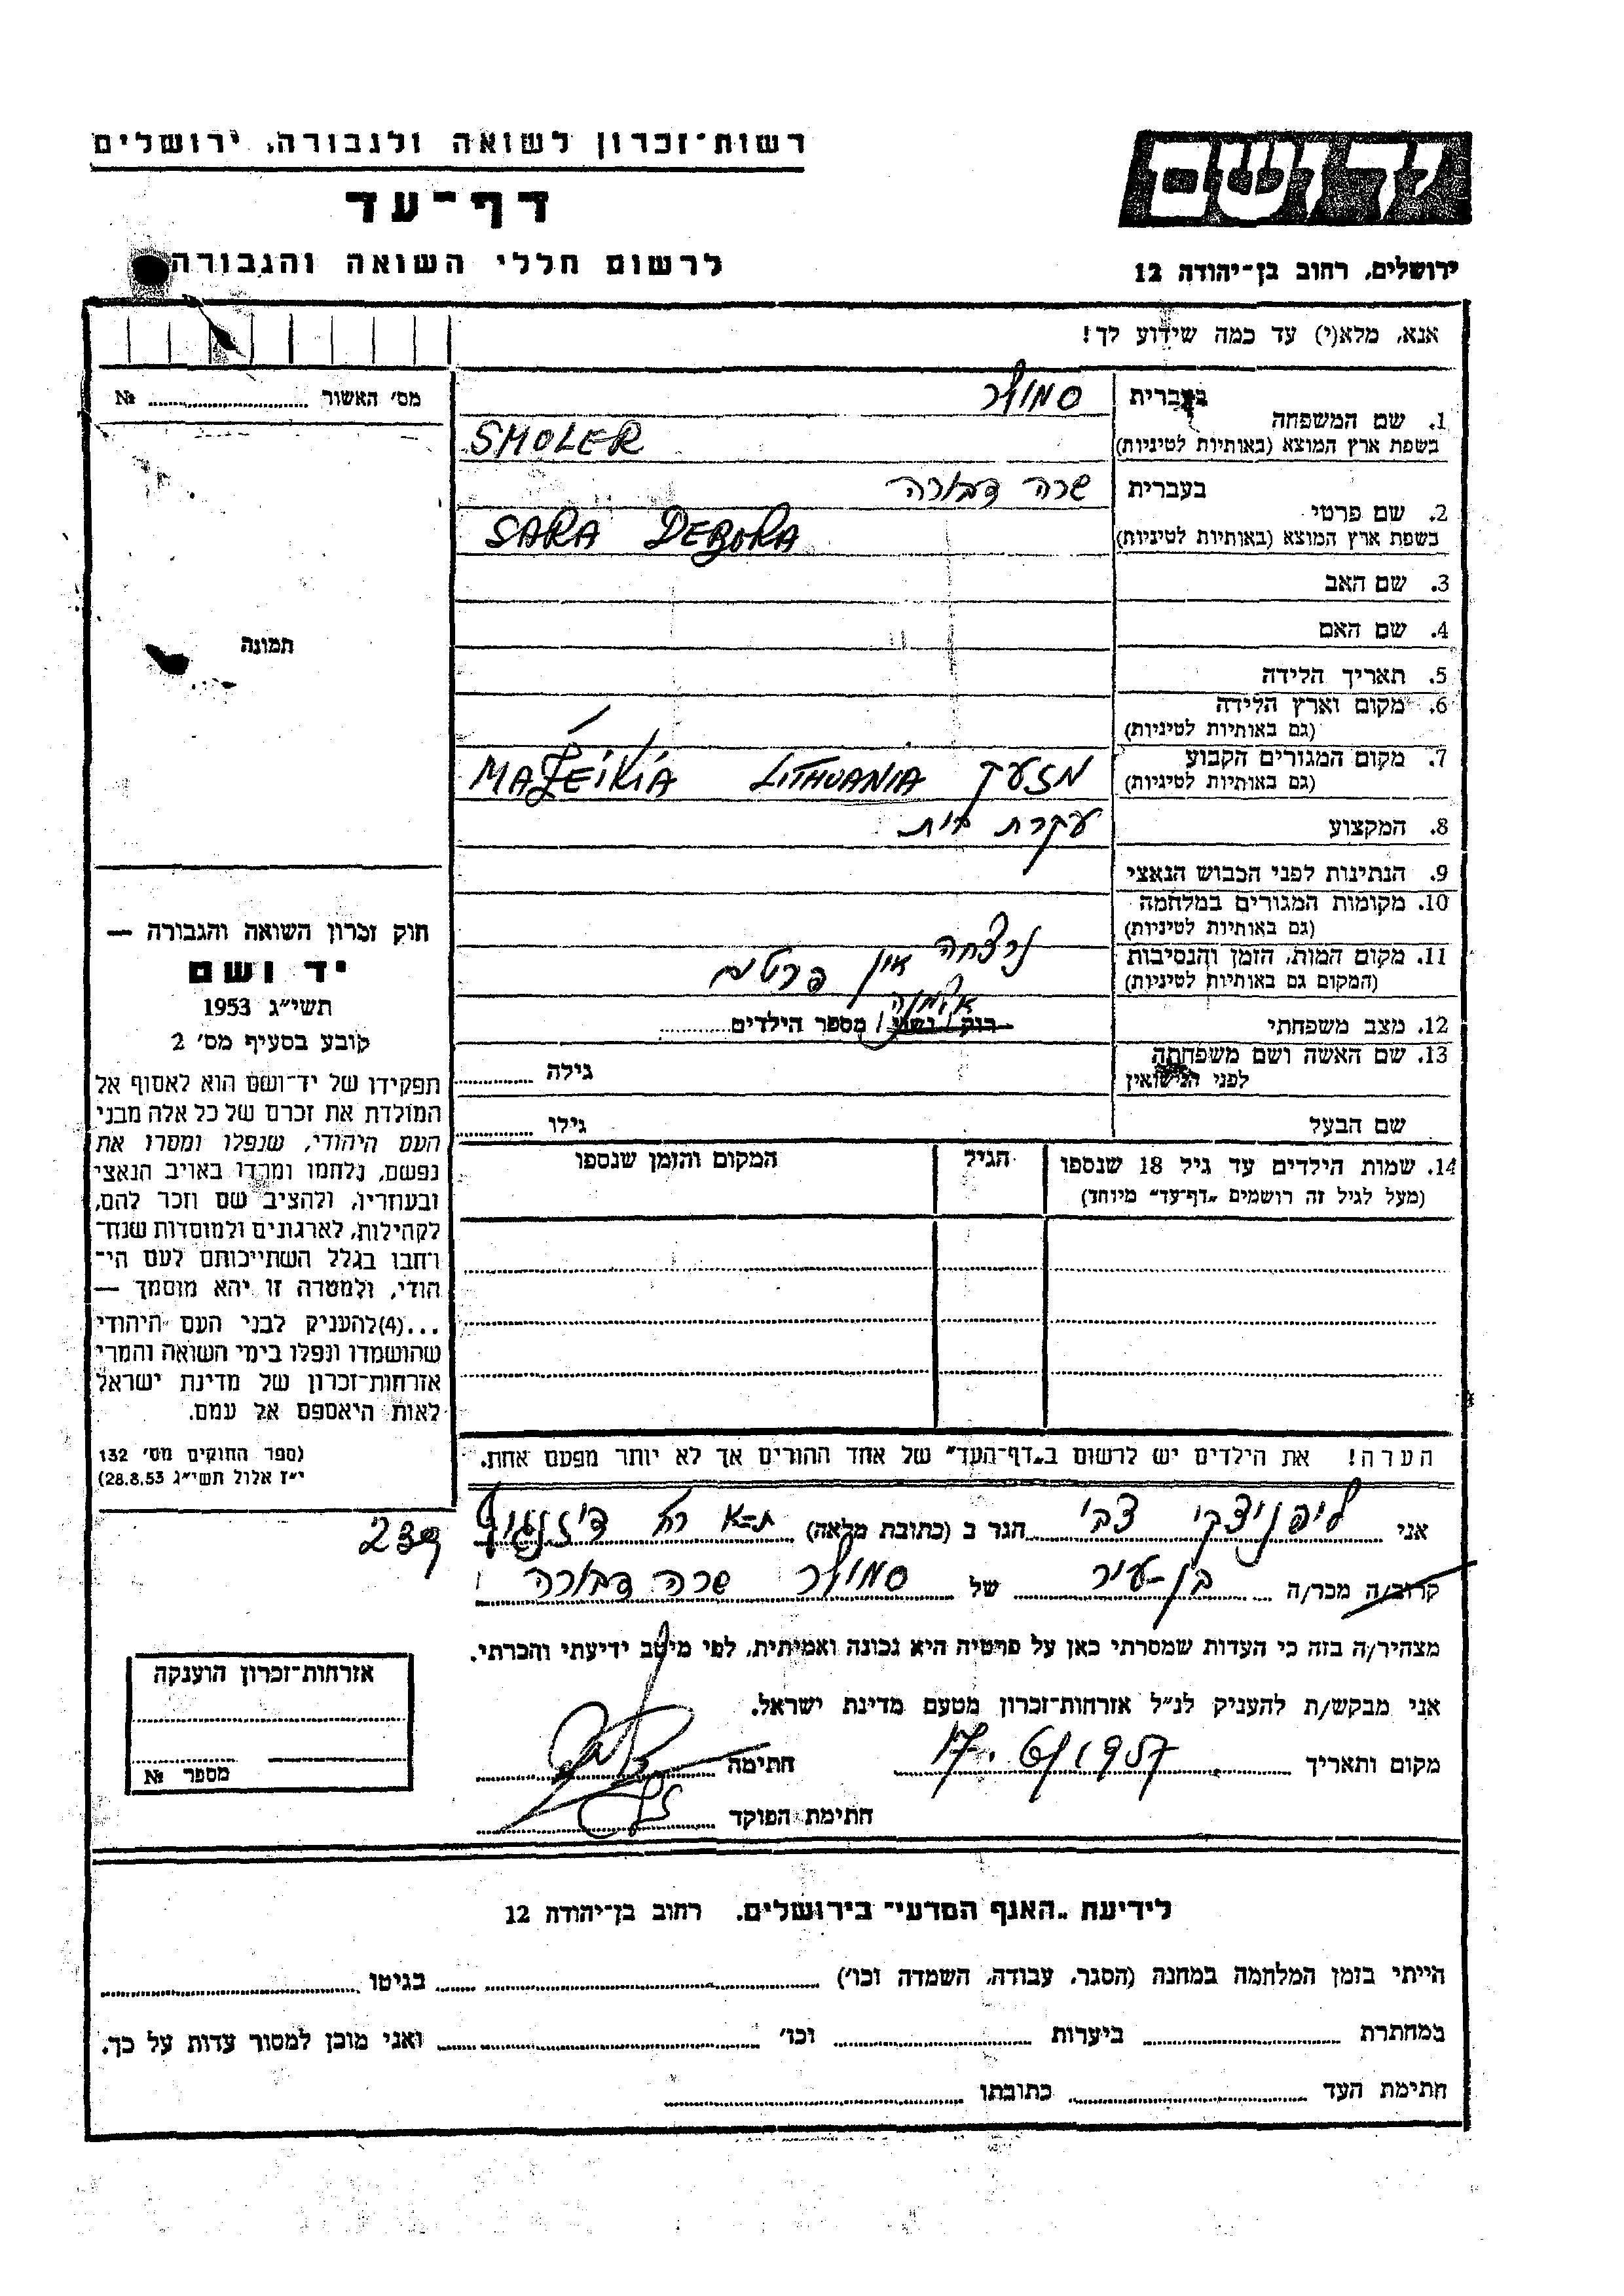 רשות־זכרון לשואה ולגבורה, ירושלים
דף־עד
לרשום חללי השואה והגבורה
יד ושם
ירושלים, רחוב בן־יהודה 12
אנא, מלא(י) עד כמה שידוע לך!
מס׳ האשור № ........
1. שם המשפחה בעברית סמולר
בשפת ארץ המוצא (באותיות לטיניות) SMOLER
2. שם פרטי בעברית שרה דבורה
בשפת ארץ המוצא (באותיות לטיניות) SARA DEBORA
3. שם האב
4. שם האם
5. תאריך הלידה
6. מקום וארץ הלידה
(גם באותיות לטיניות)
7. מקום המגורים הקבוע
(גם באותיות לטיניות)
מזעיק LITHUANIA MAŽEIKIA
8. המקצוע עקרת בית
9. הנתינות לפני הכבוש הנאצי
10. מקומות המגורים במלחמה
(גם באותיות לטיניות)
11. מקום המות, הזמן והנסיבות
(המקום גם באותיות לטיניות)
נרצחה אין פרטים
12. מצב משפחתי אלמנה
רוק / נשוי / מספר הילדים ........
13. שם האשה ושם משפחתה
לפני הנישואין
גילה ........
שם הבעל גילו ........
14. שמות הילדים עד גיל 18 שנספו
(מעל לגיל זה רושמים „דף־עד״ מיוחד)
הגיל
המקום והזמן שנספו
הערה! את הילדים יש לרשום ב„דף־העד״ של אחד ההורים אך לא יותר מפעם אחת.
תמונה
חוק זכרון השואה והגבורה —
יד ושם
תשי״ג 1953
קובע בסעיף מס׳ 2
תפקידו של יד־ושם הוא לאסוף אל
המולדת את זכרם של כל אלה מבני
העם היהודי, שנפלו ומסרו את
נפשם, נלחמו ומרדו באויב הנאצי
ובעוזריו, ולהציב שם וזכר להם,
לקהילות, לארגונים ולמוסדות שנח־
רחבו בגלל השתייכותם לעם הי־
הודי, ולמטרה זו יהא מוסמך —
...(4)להעניק לבני העם היהודי
שהושמדו ונפלו בימי השואה והמרי
אזרחות־זכרון של מדינת ישראל
לאות היאספם אל עמם.
(ספר החוקים מס׳ 132
י״ז אלול תשי״ג 28.8.53)
אני ליפניצקי צבי הגר ב (כתובת מלאה) ת-א רח דיזנגוף 239
קרוב/ה מכר/ה בן-עיר של סמולר שרה דבורה
מצהיר/ה בזה כי העדות שמסרתי כאן על פרטיה היא נכונה ואמיתית, לפי מיטב ידיעתי והכרתי.
אני מבקש/ת להעניק לנ״ל אזרחות־זכרון מטעם מדינת ישראל.
מקום ותאריך 17.6/1957 חתימה
חתימת הפוקד
אזרחות־זכרון הוענקה
מספר №
לידיעת „האגף המדעי״ בירושלים, רחוב בן־יהודה 12
הייתי בזמן המלחמה במחנה (הסגר, עבודה, השמדה וכו׳) ........ בגיטו ........
במחתרת ........ ביערות ........ וכו׳ ........ ואני מוכן למסור עדות על כך.
חתימת העד ........ כתובתו ........